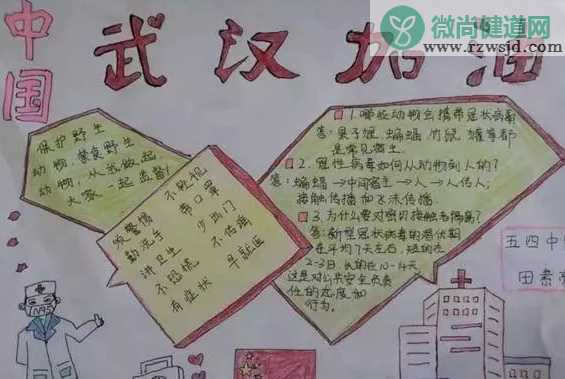 微尚健道网
www.rzwsjd.com
中国
武汉加油
保护野生
动物，禁食野生
动物，从我做起，
大家一起监督！
不聚视
须警惕 带口罩
勤洗手 少出门
讲卫生 不传谣
不恐慌 早就医
有症状
1.哪些动物会携带冠状病毒
答：果子狸、蝙蝠、竹鼠、獾等都
是常见宿主。
2.冠性病毒如何从动物到人的？
答：蝙蝠→中间宿主→人→人传人；
接触传播加飞沫传播。
3.为什么要对密切接触者隔离？
答：新型冠状病毒的潜伏期
在平均7天左右，短的在
2-3日，长的在10-14天
这是对公共安全负责
任的态度和
行为。
五四中
田素